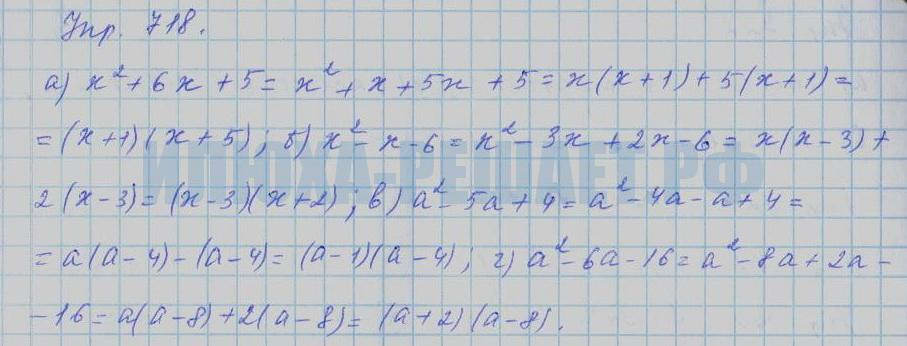 Упр. 718.
а) x² + 6x + 5 = x² + x + 5x + 5 = x(x+1) + 5(x+1) =
= (x+1)(x+5); б) x² - x - 6 = x² - 3x + 2x - 6 = x(x-3) +
ИЛЮХА-РЕШАЕТ.РФ
2(x-3) = (x-3)(x+2); в) a² - 5a + 4 = a² - 4a - a + 4 =
= a(a-4) - (a-4) = (a-1)(a-4); г) a² - 6a - 16 = a² - 8a + 2a -
- 16 = a(a-8) + 2(a-8) = (a+2)(a-8).